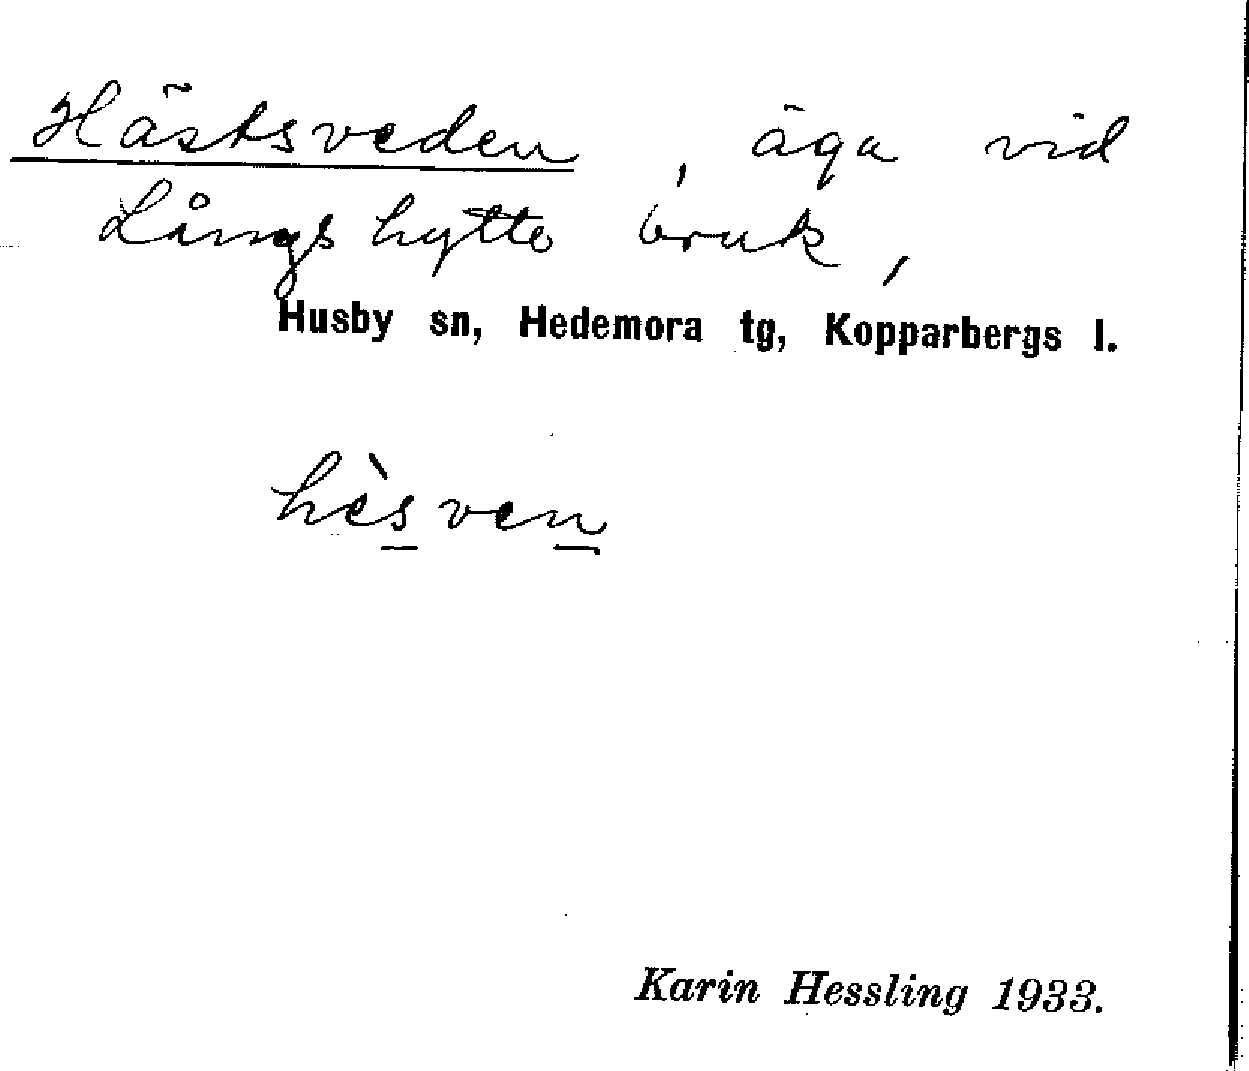 Hästsveden, äga vid
Långshytte bruk,
Husby sn, Hedemora tg, Kopparbergs l.
hèsven
Karin Hessling 1933.